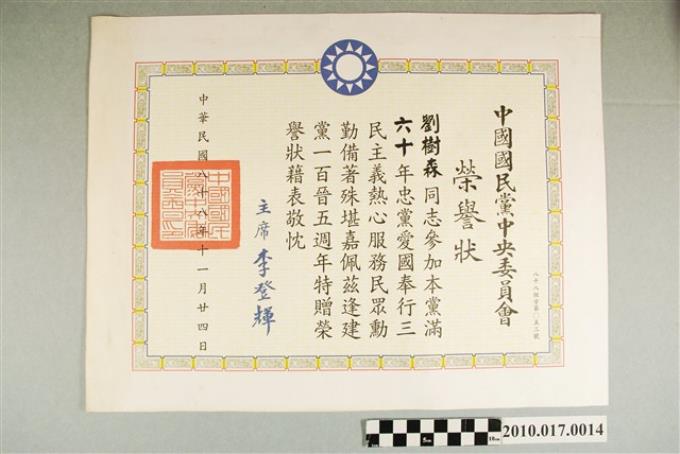 中國國民黨中央委員會
榮譽狀
劉樹森同志參加本黨滿
六十年忠黨愛國奉行三
民主義熱心服務民眾勳
勤備著殊堪嘉佩茲逢建
黨一百晉五週年特贈榮
譽狀藉表敬忱
主席 李登輝
中華民國八十八年十一月廿四日
2010.017.0014